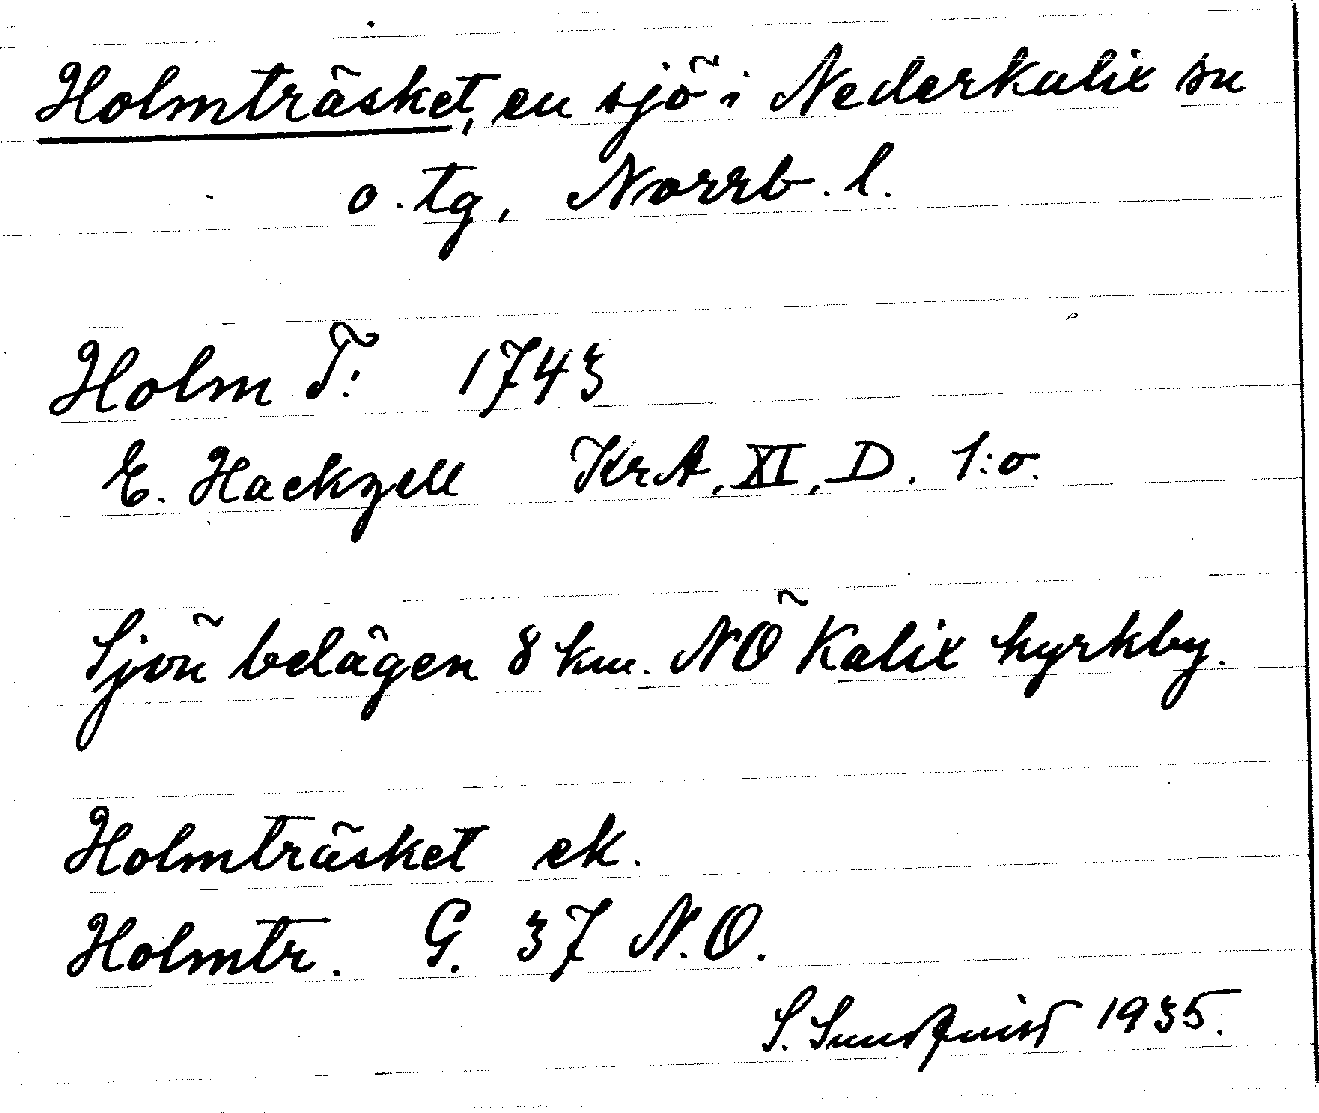 Holmträsket, en sjö i Nederkalix sn
o. tg, Norrb. l.
Holm T: 1743
E. Hackzell KrA, XI, D. 1:o.
Sjön belägen 8 km. NÖ Kalix kyrkby.
Holmträsket ek.
Holmtr. G. 37 N.O.
S. Sundquist 1935.